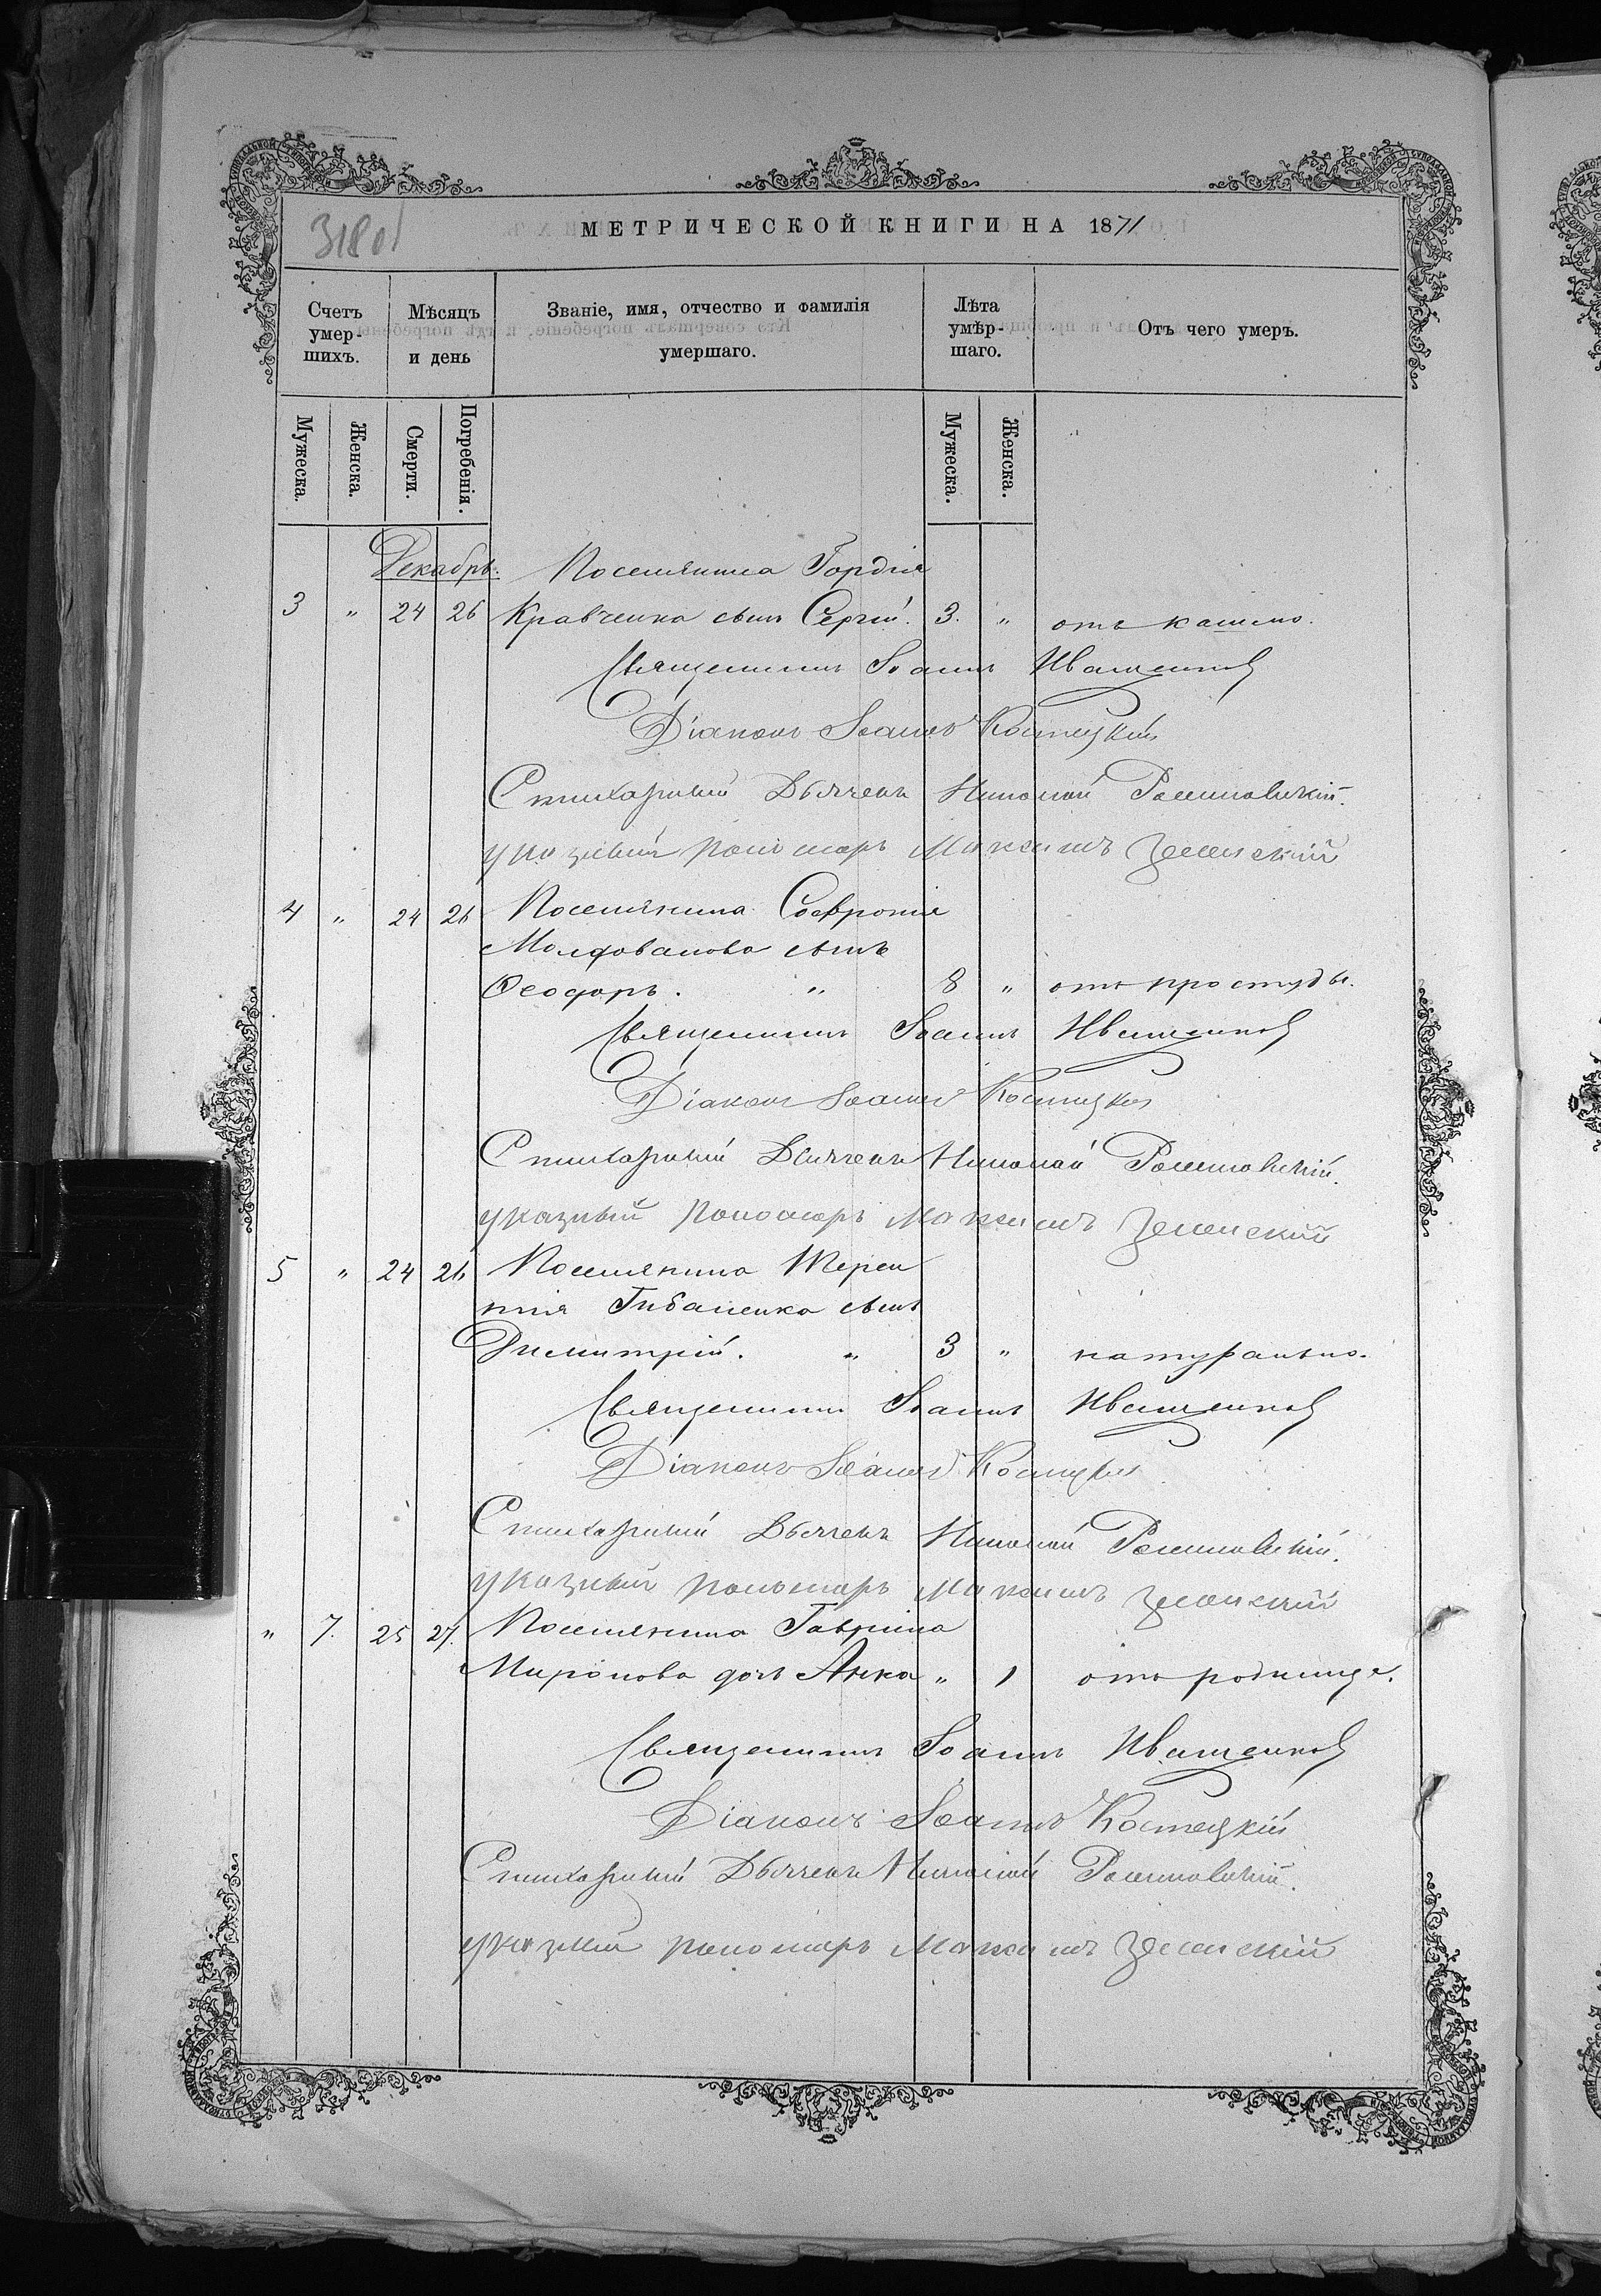 318 об
МЕТРИЧЕСКОЙ КНИГИ НА 1871
Счетъ умер-шихъ.
Мѣсяцъ и день
Званіе, имя, отчество и фамилія умершаго.
Лѣта умѣр-шаго.
Отъ чего умеръ.
Мужеска.
Женска.
Смерти.
Погребенія.
Мужеска.
Женска.
Декабрь. Поселянина Гордія
3 " 24 26 Кравченка сынъ Сергій. 3. " отъ кашлю.
Священникъ Іоаннъ Иващенков
Діаконъ Іоаннъ Костецкій
Стихарный Дьячекъ Николай Рошповскій.
указный пономарь Максимъ Зеленскій
4 " 24 26 Поселянина Софронія
Молдованова сынъ
Ѳеодоръ. " 8 " отъ простуды.
Священникъ Іоаннъ Иващенков
Діаконъ Іоаннъ Костецкій
Стихарный Дьячекъ Николай
указный пономарь Максимъ Зеленскій
5 " 24 26 Поселянина Терен
тія Гибаленка сынъ
Димитрій. " 3 " натурально.
Священникъ Іоаннъ Иващенков
Діаконъ Іоаннъ Костецкій
Стихарный Дьячекъ Николай
указный пономарь Максимъ Зеленскій
" 7. 25 27. Поселянина Гавріила
Миронова дочь Анна " 1 отъ роднице.
Священникъ Іоаннъ Иващенков
Діаконъ Іоаннъ Костецкій
Стихарный Дьячекъ Николай
указный пономарь Максимъ Зеленскій